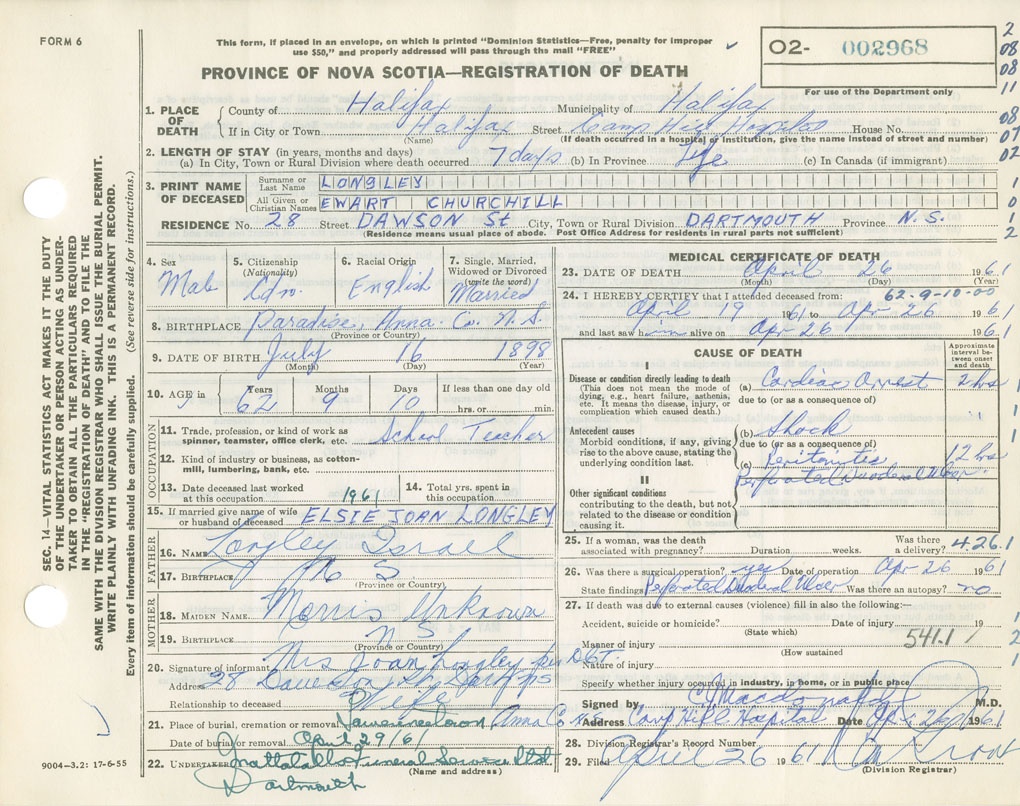 FORM 6
This form, if placed in an envelope, on which is printed "Dominion Statistics—Free, penalty for improper
use $50," and properly addressed will pass through the mail "FREE"
PROVINCE OF NOVA SCOTIA—REGISTRATION OF DEATH
O2- 002968
For use of the Department only
2
08
08
11
08
07
02
1. PLACE OF DEATH
County of Halifax Municipality of Halifax
If in City or Town Halifax Street Camp Hill Hospital House No.
(Name) (If death occurred in a hospital or institution, give the name instead of street and number)
2. LENGTH OF STAY (in years, months and days)
(a) In City, Town or Rural Division where death occurred 7 days (b) In Province Life (c) In Canada (if immigrant)
3. PRINT NAME OF DECEASED
Surname or Last Name LONGLEY
All Given or Christian Names EWART CHURCHILL
RESIDENCE No. 28 Street DAWSON St City, Town or Rural Division DARTMOUTH Province N.S.
(Residence means usual place of abode. Post Office Address for residents in rural parts not sufficient)
1
0
1
2
SEC. 14—VITAL STATISTICS ACT MAKES IT THE DUTY
OF THE UNDERTAKER OR PERSON ACTING AS UNDER-
TAKER TO OBTAIN ALL THE PARTICULARS REQUIRED
IN THE "REGISTRATION OF DEATH" AND TO FILE THE
SAME WITH THE DIVISION REGISTRAR WHO SHALL ISSUE THE BURIAL PERMIT.
WRITE PLAINLY WITH UNFADING INK. THIS IS A PERMANENT RECORD.
Every item of information should be carefully supplied. (See reverse side for instructions.)
4. Sex Male
5. Citizenship (Nationality) Cdn.
6. Racial Origin English
7. Single, Married, Widowed or Divorced (write the word) Married
8. BIRTHPLACE Paradise, Anna. Co. N.S.
(Province or Country)
9. DATE OF BIRTH July 16 1898
(Month) (Day) (Year)
10. AGE in Years 62 Months 9 Days 10 If less than one day old
hrs. or min.
OCCUPATION
11. Trade, profession, or kind of work as spinner, teamster, office clerk, etc. School Teacher
12. Kind of industry or business, as cotton-mill, lumbering, bank, etc.
13. Date deceased last worked at this occupation 1961
14. Total yrs. spent in this occupation
15. If married give name of wife or husband of deceased ELSIE JOAN LONGLEY
FATHER
16. Name Longley Israel
17. BIRTHPLACE N S
(Province or Country)
MOTHER
18. MAIDEN NAME Morris Unknown
19. BIRTHPLACE N S
(Province or Country)
20. Signature of informant Mrs Joan Longley per
Address 28 Dawson St
Relationship to deceased Wife
21. Place of burial, cremation or removal Lawrencetown Anna Co
Date of burial or removal April 29/61
22. UNDERTAKER Funeral Service Ltd.
(Name and address)
Dartmouth
9004-3.2: 17-6-55
MEDICAL CERTIFICATE OF DEATH
23. DATE OF DEATH April 26 1961
(Month) (Day) (Year)
24. I HEREBY CERTIFY that I attended deceased from: 62-9-10-00
April 19 1961 to Apr 26 1961
and last saw him alive on Apr 26 1961
CAUSE OF DEATH
Approximate interval between onset and death
I
Disease or condition directly leading to death
(This does not mean the mode of dying, e.g., heart failure, asthenia, etc. It means the disease, injury, or complication which caused death.)
(a) Cardiac Arrest 2 hrs
due to (or as a consequence of)
Antecedent causes
Morbid conditions, if any, giving rise to the above cause, stating the underlying condition last.
(b) Shock
due to (or as a consequence of)
(c) Peritonitis 12 hrs
Perforated Duodenal Ulcer "
II
Other significant conditions
contributing to the death, but not related to the disease or condition causing it.
25. If a woman, was the death associated with pregnancy? Duration weeks. Was there a delivery? 4.26.1
26. Was there a surgical operation? yes Date of operation Apr 26 1961
State findings Perforated Duodenal Ulcer Was there an autopsy? no
27. If death was due to external causes (violence) fill in also the following:—
Accident, suicide or homicide? Date of injury 19
(State which)
541.1
Manner of injury
(How sustained
Nature of injury
Specify whether injury occurred in industry, in home, or in public place
Signed by C. Macdonald M.D.
Address Camp Hill Hospital Date Apr 26 1961
28. Division Registrar's Record Number
29. Filed April 26 1961
(Division Registrar)